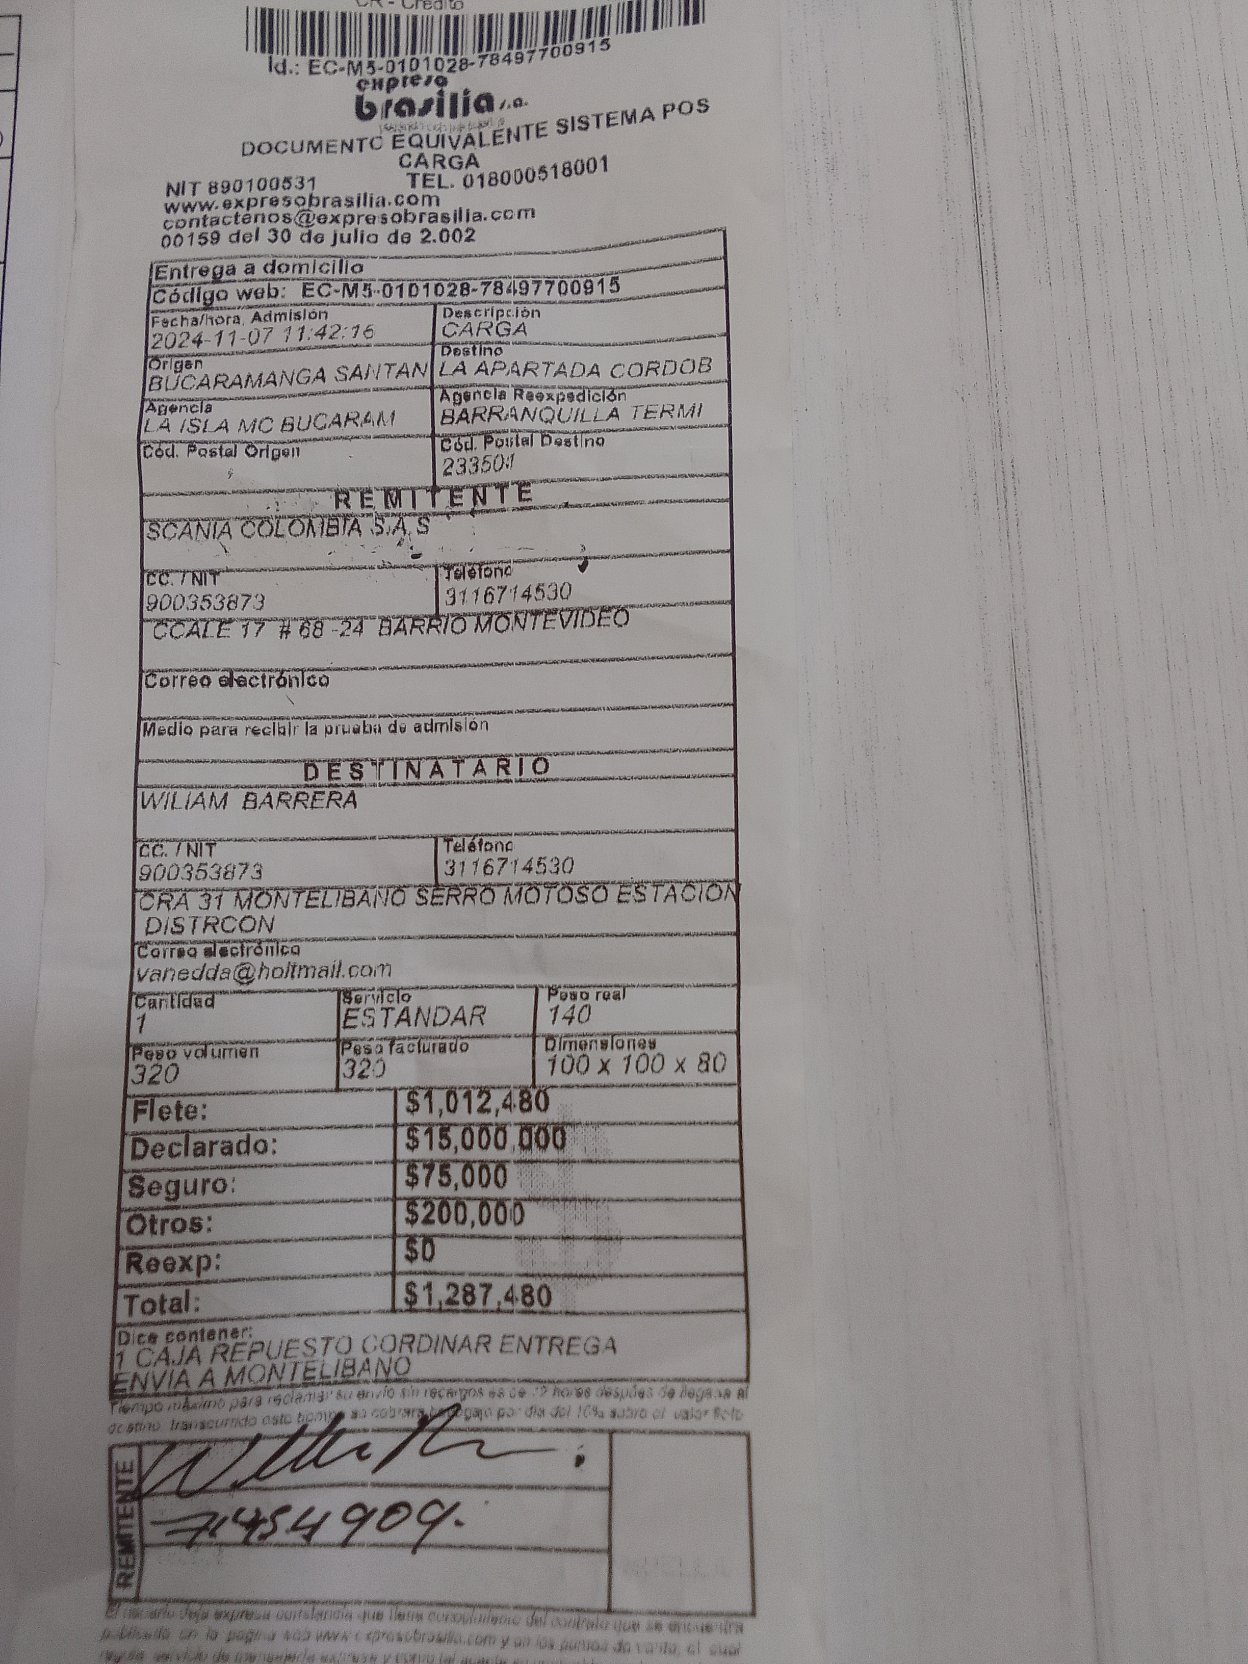 CR - Crédito
Id.: EC-M5-0101028-78497700915
expreso
brasilia s.a.
DOCUMENTO EQUIVALENTE SISTEMA POS
CARGA
NIT 890100531 TEL. 018000518001
www.expresobrasilia.com
contactenos@expresobrasilia.com
00159 del 30 de julio de 2.002
Entrega a domicilio
Código web: EC-M5-0101028-78497700915
Fecha/hora, Admisión Descripción
2024-11-07 11:42:16 CARGA
Origen Destino
BUCARAMANGA SANTAN LA APARTADA CORDOB
Agencia Agencia Reexpedición
LA ISLA MC BUCARAM BARRANQUILLA TERMI
Cód. Postal Origen Cód. Postal Destino
233501
REMITENTE
SCANIA COLOMBIA S.A.S
CC. / NIT Teléfono
900353873 3116714530
CCALE 17 # 68 -24 BARRIO MONTEVIDEO
Correo electrónico
Medio para recibir la prueba de admisión
DESTINATARIO
WILIAM BARRERA
CC. / NIT Teléfono
900353873 3116714530
CRA 31 MONTELIBANO SERRO MOTOSO ESTACION
DISTRCON
Correo electrónico
vanedda@holtmail.com
Cantidad Servicio Peso real
1 ESTANDAR 140
Peso volumen Peso facturado Dimensiones
320 320 100 x 100 x 80
Flete: $1,012,480
Declarado: $15,000,000
Seguro: $75,000
Otros: $200,000
Reexp: $0
Total: $1,287,480
Dice contener:
1 CAJA REPUESTO CORDINAR ENTREGA
ENVIA A MONTELIBANO
Tiempo máximo para reclamar su envío sin recargos es de 72 horas después de llegada al
destino, transcurrido este tiempo se cobrará bodegaje por día del 10% sobre el valor flete
REMITENTE
71454909.
El usuario deja expresa constancia que tiene conocimiento del contrato que se encuentra
publicado en la página web www.expresobrasilia.com y en los puntos de venta, el cual